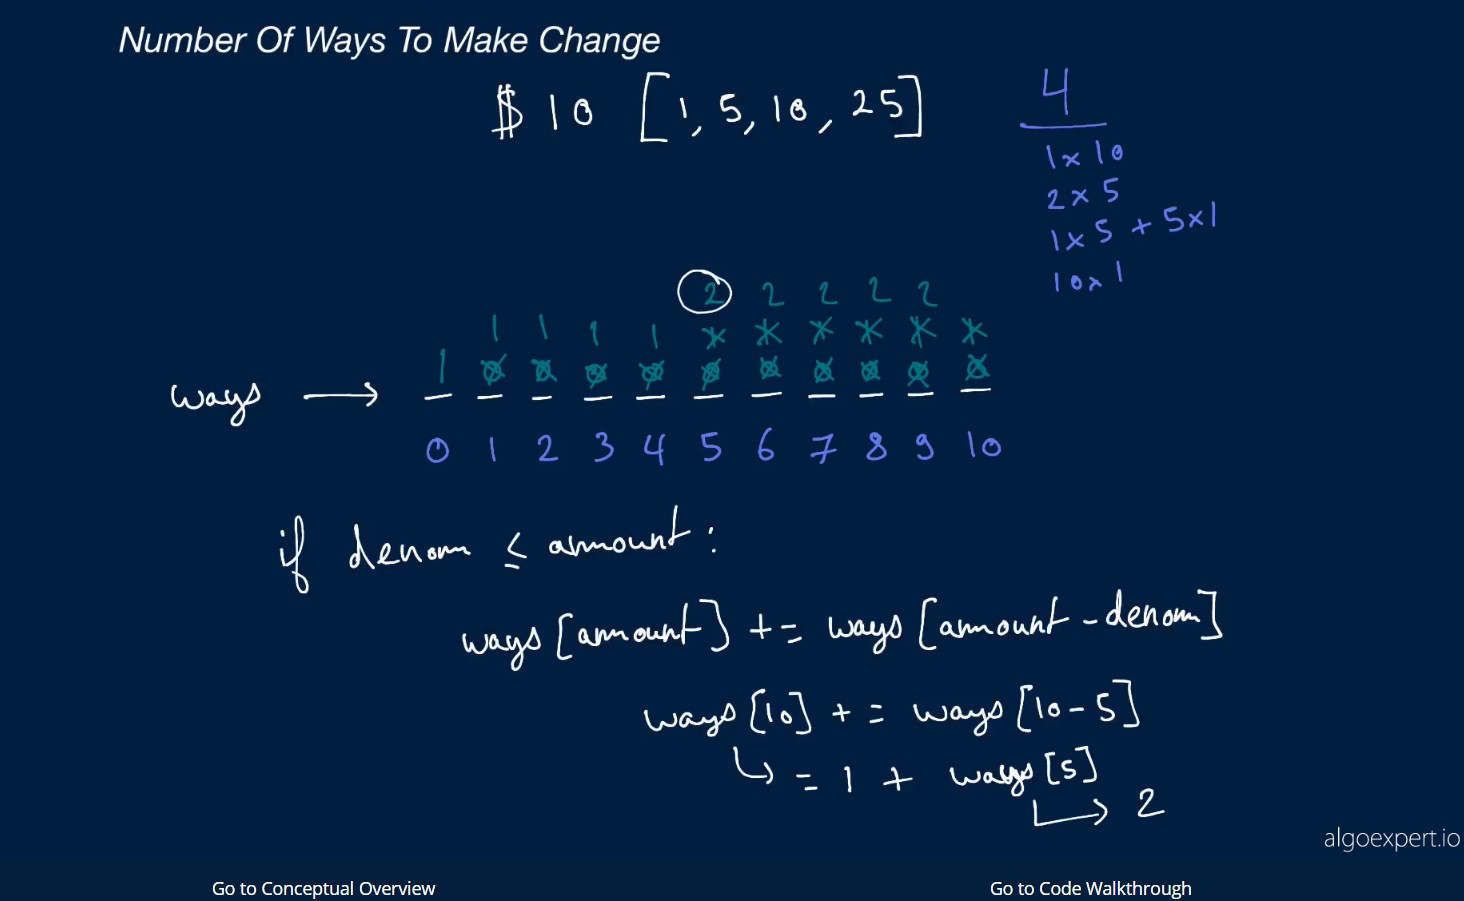 Number Of Ways To Make Change
$ 10 [1, 5, 10, 25]
4
1x10
2x5
1x5 + 5x1
10x1
2 2 2 2 2
1 1 1 1 1 1 1 1 1 1
1 0 0 0 0 0 0 0 0 0 0
ways →
0 1 2 3 4 5 6 7 8 9 10
if denom ≤ amount:
ways [amount] += ways [amount - denom]
ways [10] += ways [10-5]
↳ = 1 + ways [5]
↳ 2
algoexpert.io
Go to Conceptual Overview
Go to Code Walkthrough